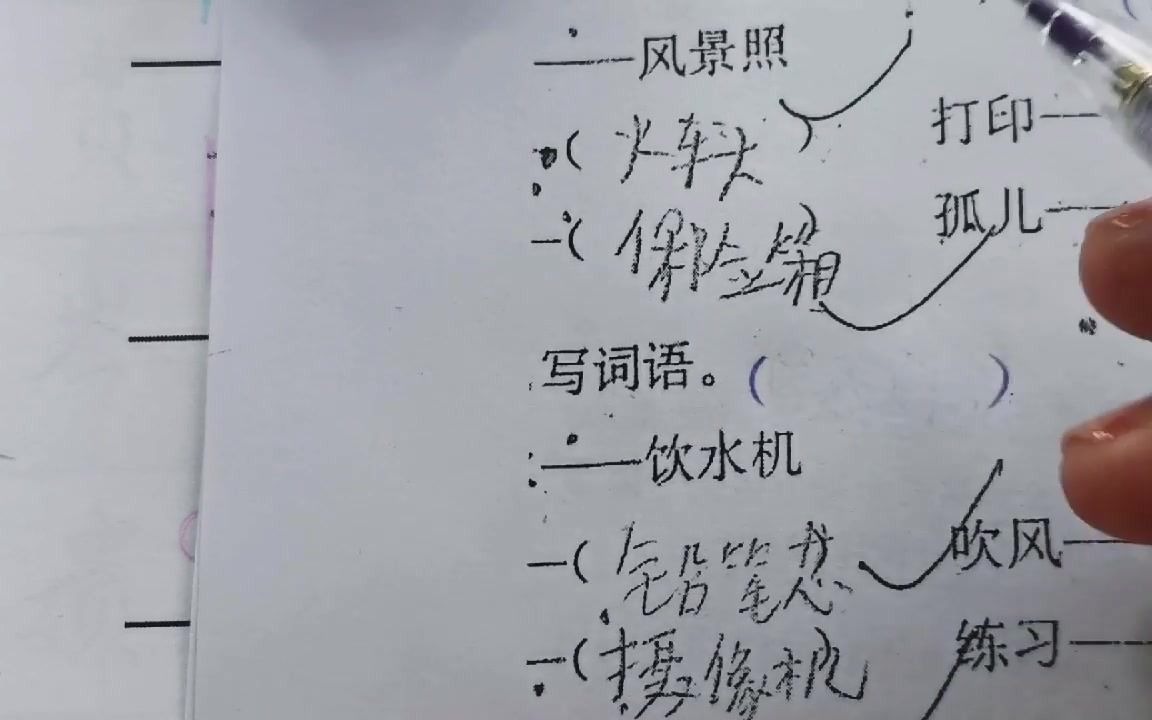 ——风景照
(火车头) 打印——
—(保险箱) 孤儿——
写词语。( )
——饮水机
—( 吹风—
—(摄像机) 练习——